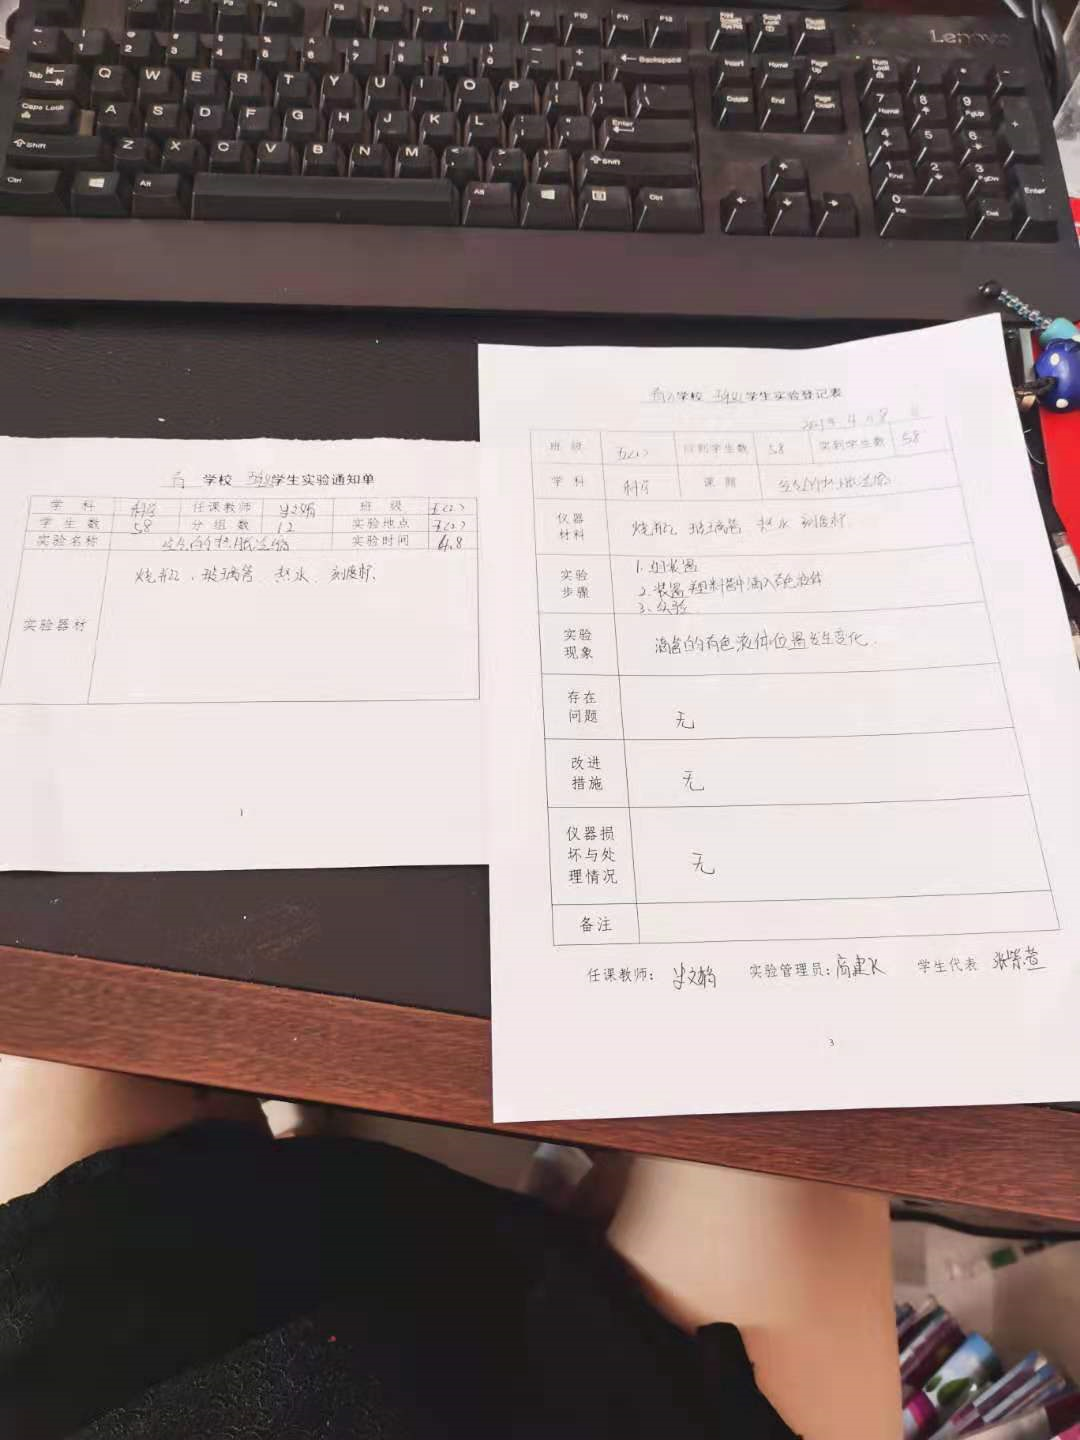 Lenovo
F5 F6 F7 F8 F9 F10 F11 F12
Backspace
Tab Q W E R T Y U I O P
Caps Lock A S D F G H J K L Enter
Shift Z X C V B N M Shift
Ctrl Alt Alt Ctrl
Insert Home Page Up
Delete End Page Down
Num Lock
7 Home 8 9 PgUp
4 5 6
1 End 2 3 PgDn Enter
0 Ins Del
学校 学生实验通知单
学 科 科学 任课教师 班 级 五(2)
学生数 58 分组数 12 实验地点 五(2)
实验名称 空气的热胀冷缩 实验时间 4.8
实验器材 烧瓶、玻璃管、热水、刻度杯、
1
学校 学生实验登记表
班 级 五(2) 应到学生数 58 实到学生数 58
学 科 科学 课 题 空气的热胀冷缩
仪器材料 烧瓶 玻璃管 热水 刻度杯
实验步骤 1. 组装置
2. 装置塑料管中滴入有色液体
3. 实验
实验现象 滴管的有色液体位置发生变化.
存在问题 无
改进措施 无
仪器损坏与处理情况 无
备注
任课教师： 实验管理员： 学生代表
3